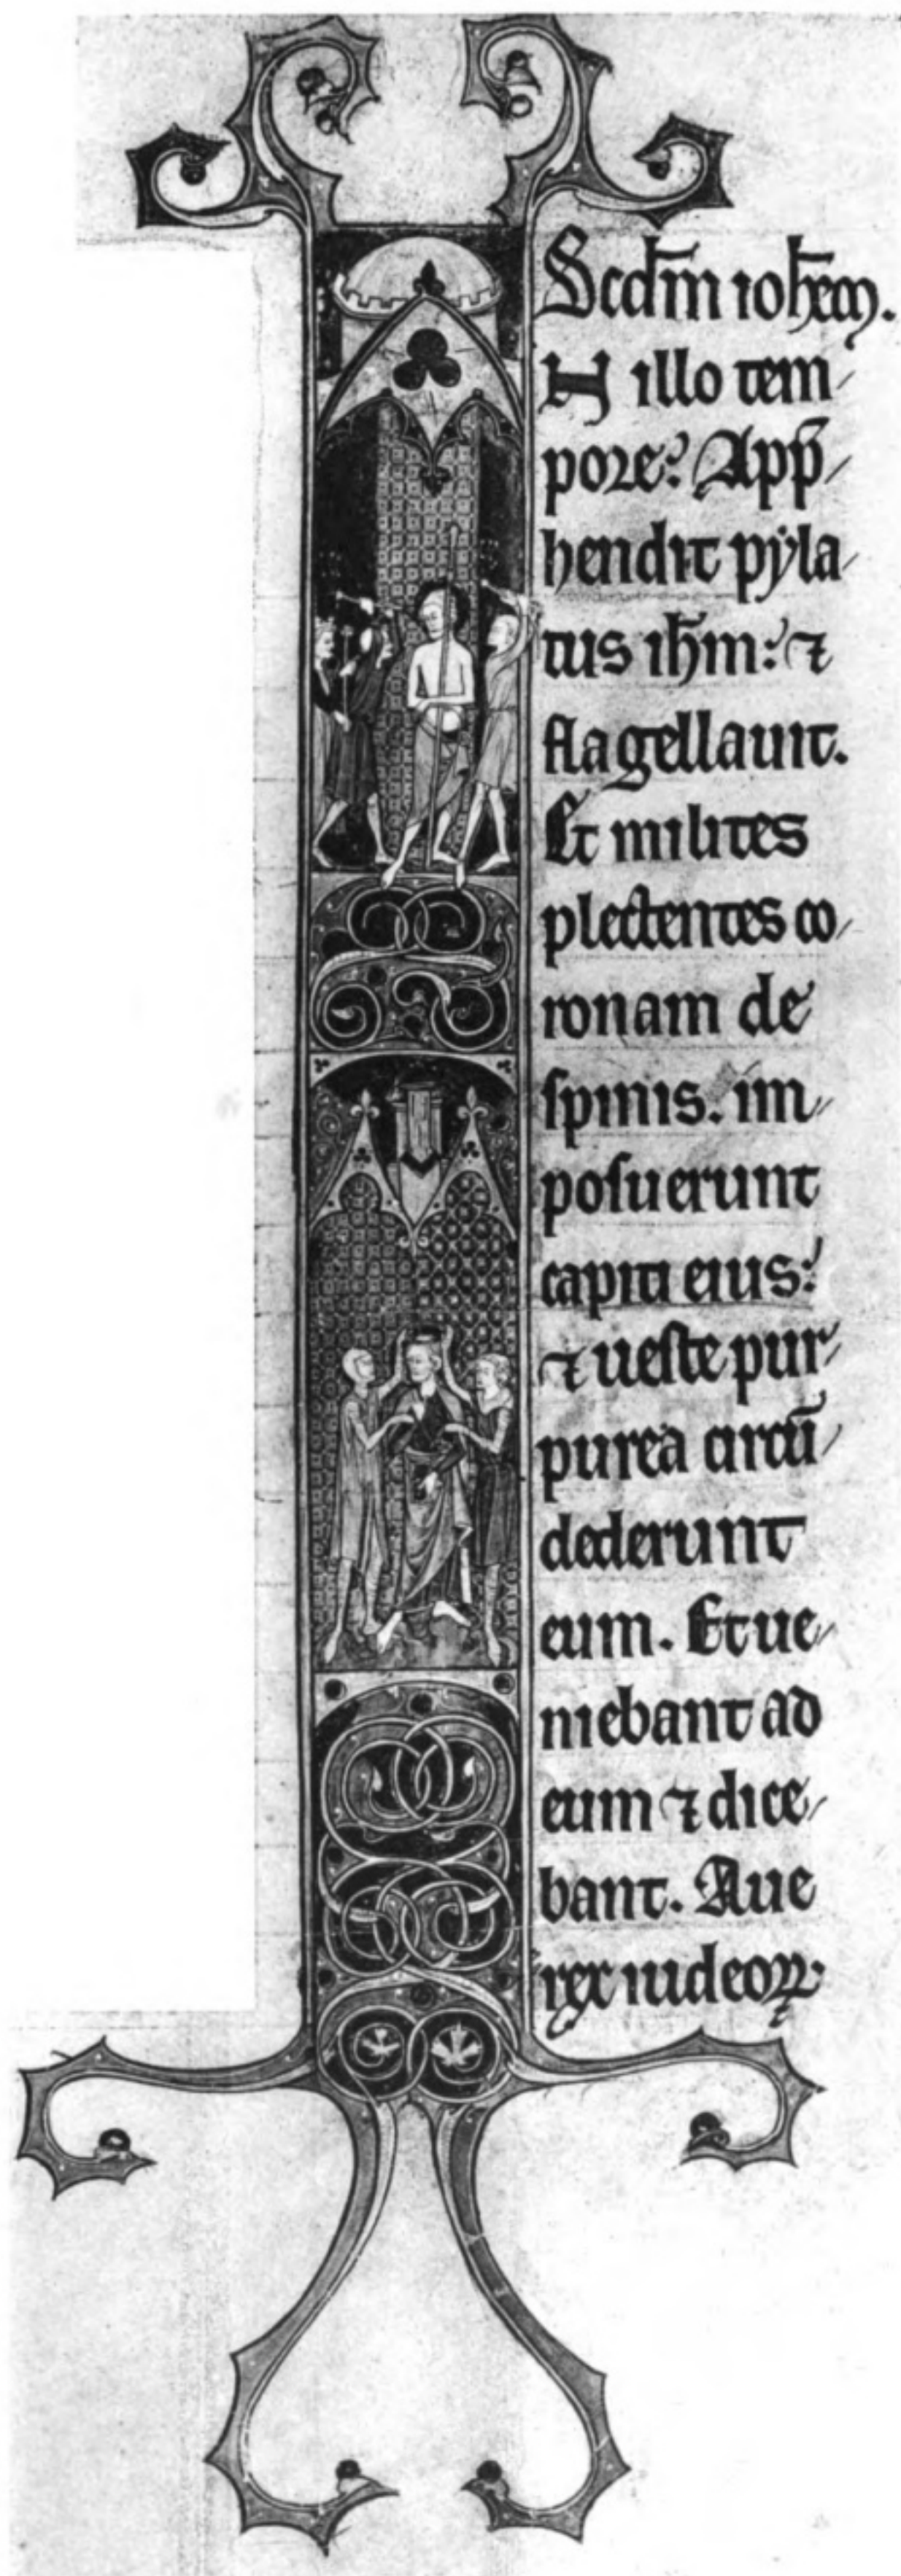 Scd̄m ioħem.
N illo tem/
pore? App̄/
hendit pẏla/
tus iħm: ⁊
flagellauit.
Et milites
plectentes co/
ronam de
spinis. im/
posuerunt
capiti eius:
⁊ ueste pur/
purea circū/
dederunt
eum. Et ue/
niebant ad
eum ⁊ dice/
bant. Aue
rex iudeoꝝ